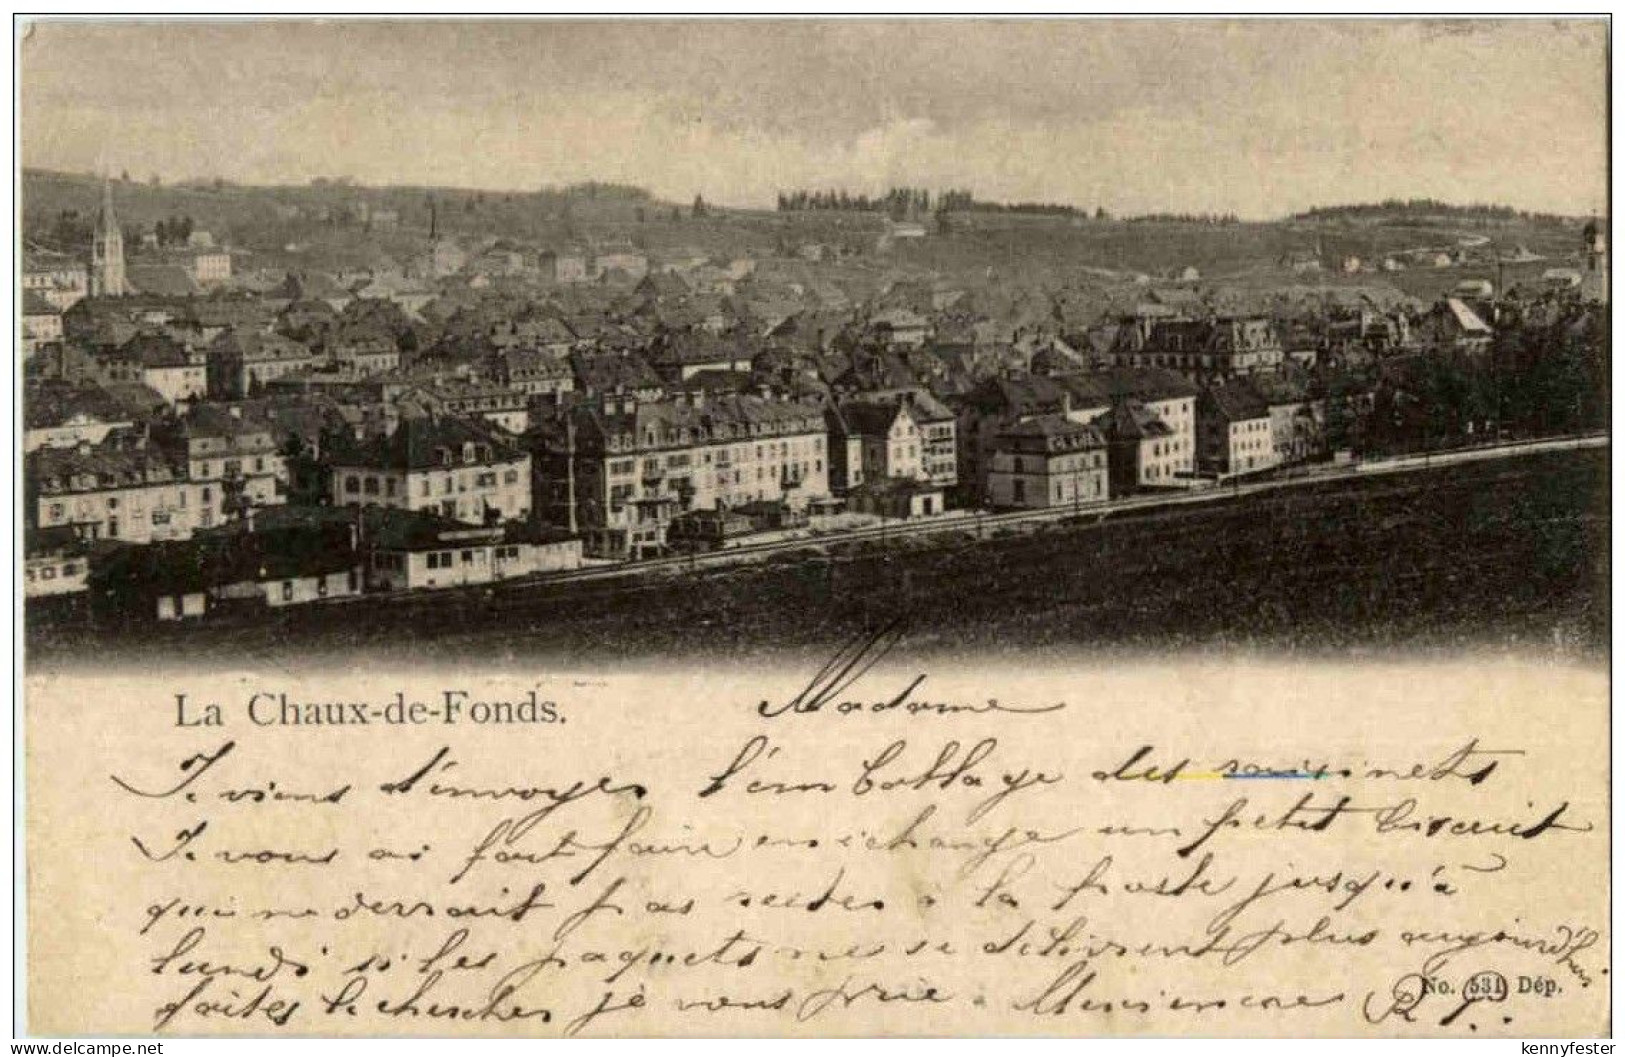 La Chaux-de-Fonds.
Madame
Je viens d'envoyer l'emballage des raisinets
Je vous ai fait faire en échange un petit biscuit
qui ne devrait pas rester à la poste jusqu'à
lundi si les paquets ne se délivrent plus aujourd'hui
faites le chercher je vous prie.
No. 531 Dép.
delcampe.net
kennyfester